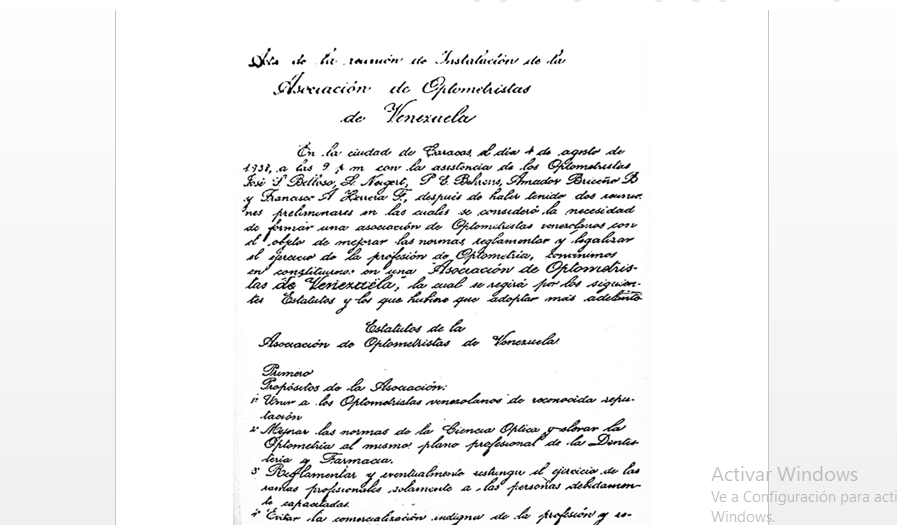 Acta de la reunión de Instalación de la
Asociación de Optometristas
de Venezuela
En la ciudad de Caracas, el dia 4 de agosto de
1932, a las 9 p m con la asistencia de los Optometristas
José S Belloso, H. Neigert, P E. Behrens, Amador Briceño B
y Francisco A Herrera F, después de haber tenido dos reunio-
nes preliminares en las cuales se consideró la necesidad
de formar una asociación de Optometristas venezolanos con
el objeto de mejorar las normas, reglamentar y legalizar
el ejercicio de la profesión de Optometria, convinimos
en constituirnos en una "Asociación de Optometris-
tas de Venezuela", la cual se regirá por los siguien-
tes Estatutos y los que hubiere que adoptar más adelante
Estatutos de la
Asociación de Optometristas de Venezuela
Primero
Propósitos de la Asociación:
1º Unir a los Optometristas venezolanos de reconocida repu-
tación
2º Mejorar las normas de la Ciencia Optica y elevar la
Optometria al mismo plano profesional de la Dentis-
teria y Farmacia.
3º Reglamentar y eventualmente restringir el ejercicio de las
ramas profesionales solamente a las personas debidamen-
te capacitadas.
4º Evitar la comercialización indigna de la profesión y re-
Activar Windows
Ve a Configuración para acti
Windows.